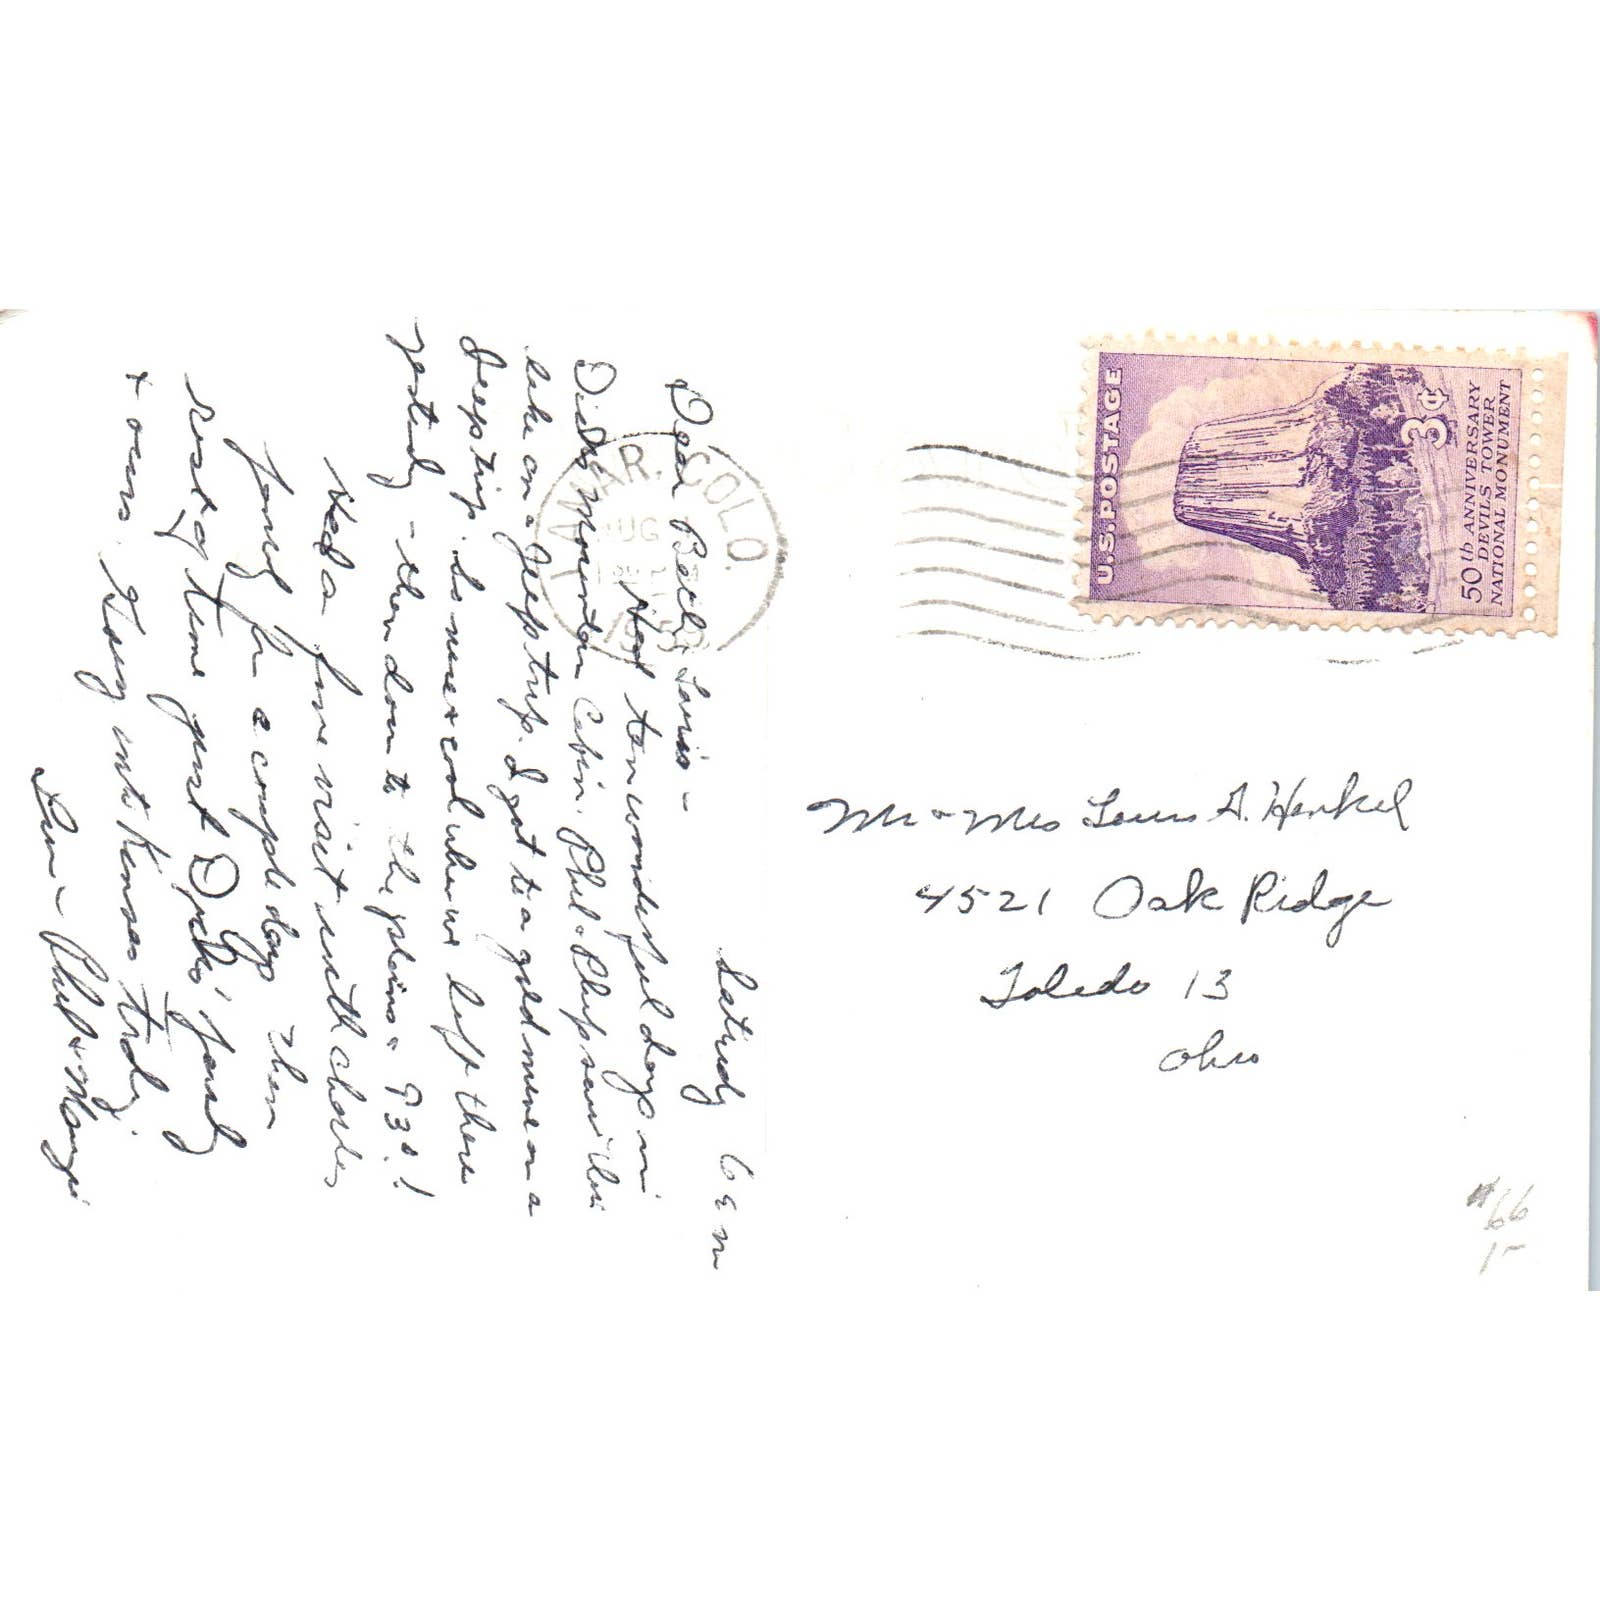 Saturdy 6 am
Dear Beck & Louis -
Had ten wonderful days in
Dick's Mountain Cabin. Phil & Phyp saw the
lake on a Jeep trip. I got to a gold mine on a
Jeep trip. So nice & cool when we left there
yesterdy - then down to the plains & 93°!
Had a fine visit with Charles
family for a couple days then
rest of time just Dicks' family
& ours. Going into Kansas tody.
Luv - Phil & Margi
LAMAR, COLO.
AUG
195
U.S. POSTAGE
3¢
50th ANNIVERSARY
DEVILS TOWER
NATIONAL MONUMENT
Mr & Mrs Louis A. Henkel
4521 Oak Ridge
Toledo 13
Ohio
#66
15